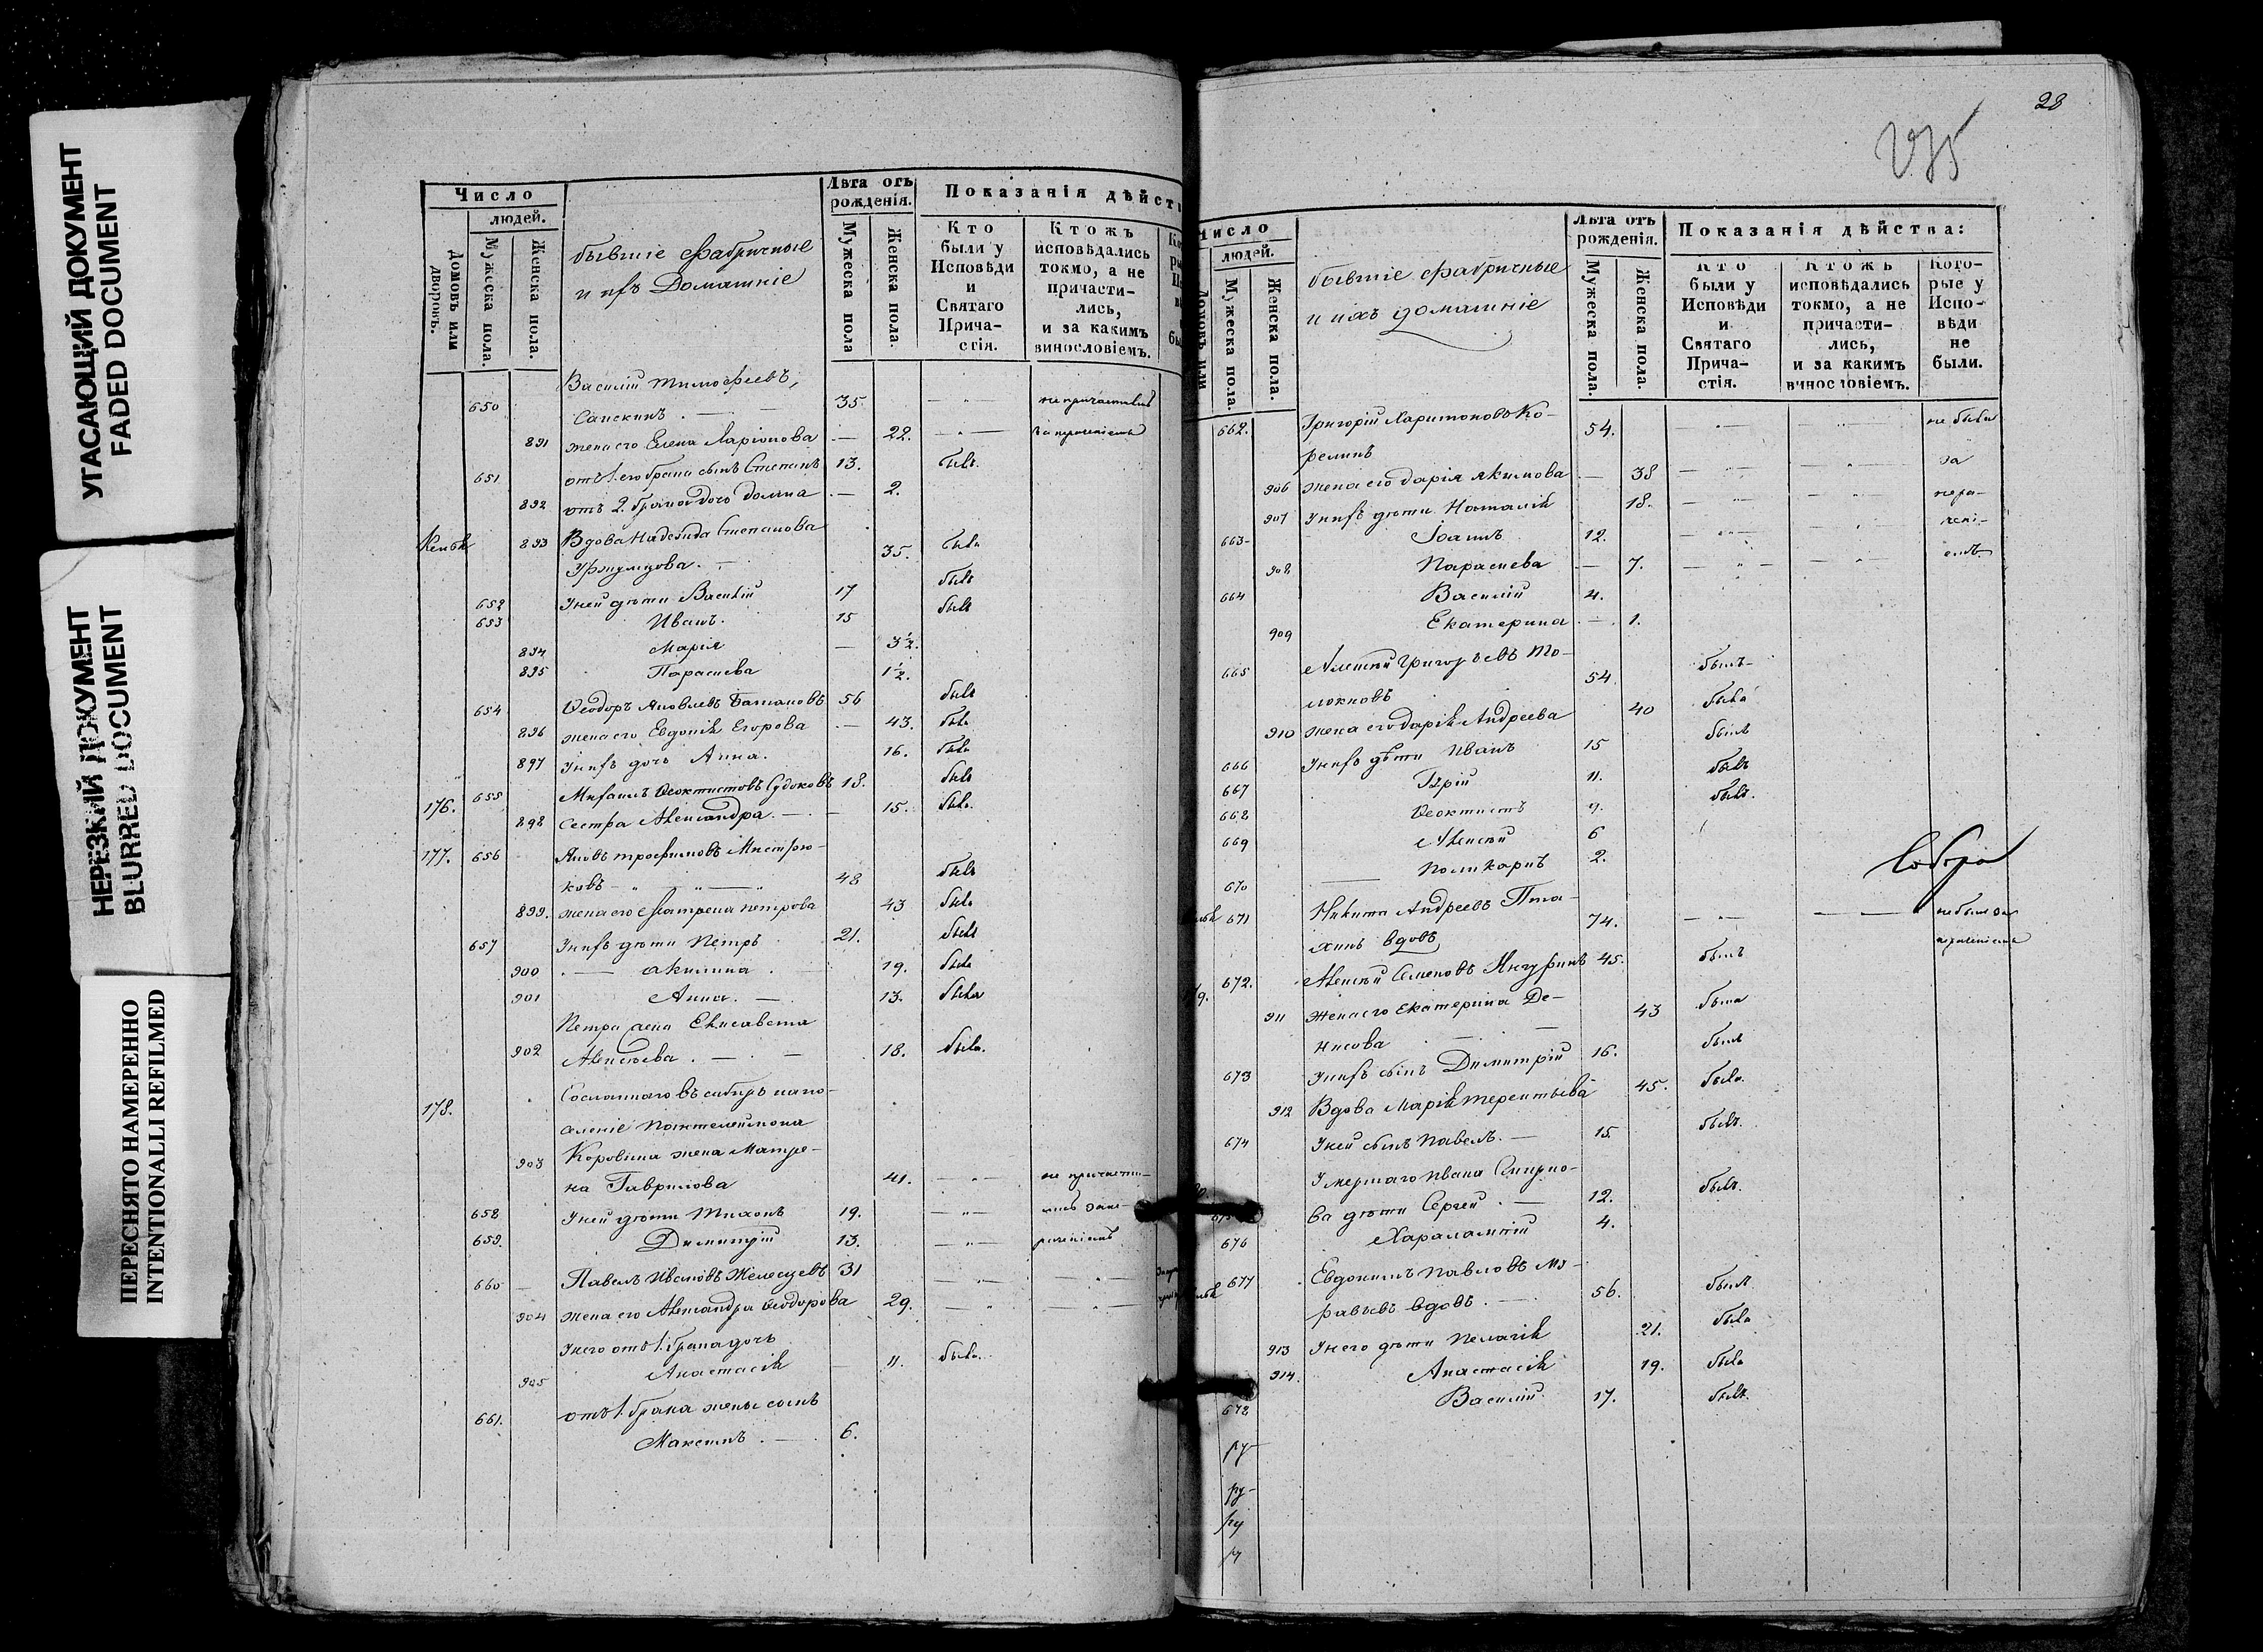 УГАСАЮЩИЙ ДОКУМЕНТ
FADED DOCUMENT
НЕРЕЗКИЙ ДОКУМЕНТ
BLURRED DOCUMENT
ПЕРЕСНЯТО НАМЕРЕННО
INTENTIONALLI REFILMED
Число
людей.
Домовъ или дворовъ.
Мужеска пола.
Женска пола.
бывшіе фабричные
и ихъ Домашніе
Лѣта отъ рожденія.
Мужеска пола
Женска пола.
Показанія дѣйст
Кто были у Исповѣди и Святаго Прича-стія.
Ктожъ исповѣдались токмо, а не причасти-лись, и за какимъ винословіемъ.
Василій Тимофеевъ,
650 35 не причастились
891 жена его Елена Ларіонова — 22. за нерачениемъ
651 отъ 1. его брака сынъ Степанъ 13. былъ.
892 отъ 2. брака дочь — 2.
893 Вдова Надежда Степанова
35. была
652 У ней дѣти Василій 17 былъ
653 Иванъ. 15 былъ
894 Марія — 3½.
895 Параскева 1½.
654 Ѳеодоръ Яковлевъ 56 былъ
896 жена его Евдокія Егорова — 43. была
897 У нихъ дочь Анна. 16. была
176. 655 Михаилъ Ѳеоктистовъ Судоковъ 18. былъ
898 Сестра Александра. — 15. была.
177. 656 Яковъ Трофимовъ Мистрю-
ковъ 48 былъ
899. жена его Матрена Петрова 43 была
657 У нихъ дѣти Петръ 21. былъ
900 Акилина 19. была
901 Анна. — 13. была
Петра жена Елисавета
902 Алексѣева. — 18. была.
178. Сосланнаго въ сибирь на по-
селеніе Пантелеймона
903 Коровина жена Матре-
на Гаврилова 41. не причасти-
658 У ней дѣти Тихонъ 19. лись за не-
659. Димитрій 13. рачениемъ
660 Павелъ Ивановъ 31
904 жена его Александра Ѳеодорова 29.
У него отъ 1. брака дочь
905 Анастасія 11. была.
661. отъ 1. брака жены сынъ
Максимъ 6.
28
Число
людей.
Домовъ или
Мужеска пола.
Женска пола.
бывшіе фабричные
и ихъ домашніе
Лѣта отъ рожденія.
Мужеска пола.
Женска пола.
Показанія дѣйства:
Кто были у Исповѣди и Святаго Прича-стія.
Ктожъ исповѣдались токмо, а не причасти-лись, и за какимъ винословіемъ.
Кото-рые у Испо-вѣди не были.
662. Григорій Харитоновъ Ко- 54. не были
релинъ
906 жена его Дарія Якимова — 38 за
907 У нихъ дѣти Наталія 18. нера-
663 Іоаннъ 12. чені-
908 Параскева — 7. емъ
664 Василій 4.
909 Екатерина — 1.
665 Алексѣй Григорьевъ То- 54 былъ
локновъ
910 жена его Дарія Андреева 40 была
666 У нихъ дѣти Иванъ 15 былъ
667 Гурій 11. былъ
668 Ѳеоктистъ 9. былъ.
669 Алексѣй 6
670 Поликарпъ 2.
671 Никита Андреевъ Пта- 74. не былъ за
хинъ вдовъ нераченіемъ
672. Алексѣй Семеновъ 45. былъ
911 Жена его Екатерина Де- 43 была
нисова
673 У нихъ сынъ Димитрій 16. былъ
912 Вдова Марія Терентьева 45. была.
674 У ней сынъ Павелъ. — 15. былъ.
Умершаго Ивана Смирно-
ва дѣти Сергей. — 12. былъ.
676 Харалампій 4.
677 Евдокимъ Павловъ Му-
равьевъ вдовъ. 56. былъ
913 У него дѣти Пелагія 21. была
914. Анастасія 19. была
678 Василій 17. былъ.